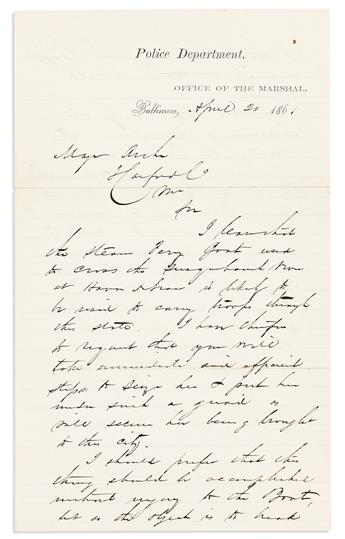 Police Department,
OFFICE OF THE MARSHAL.
Baltimore, April 20 1861
Major
Harford Co
Md
Sir
I learn that
the Steam Ferry Boat used
to cross the Susquehannah River
at Havre de Grace is likely to
be used to carry troops through
this state. I have therefore
to request that you will
take immediate and efficient
steps to seize her & put her
under such a guard as
will secure her being brought
to this city.
I should prefer that this
thing should be accomplished
without injury to the Boat,
but as the object is to